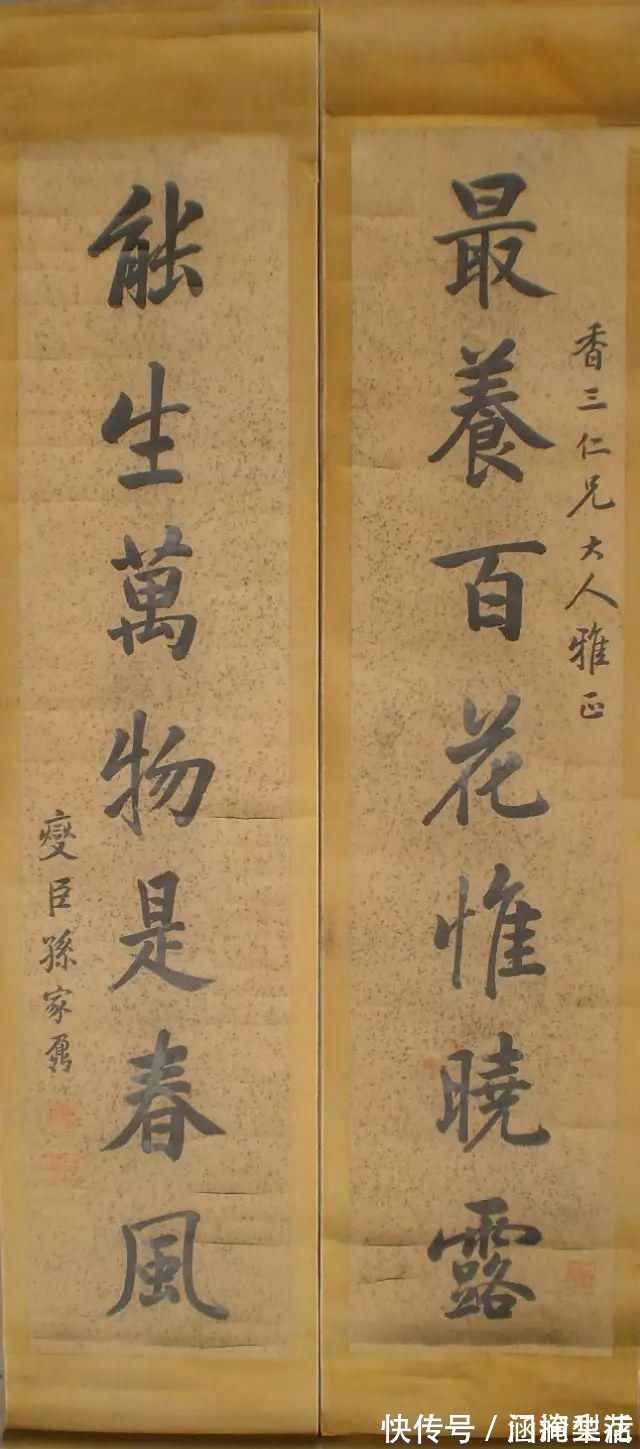 香三仁兄大人雅正
最養百花惟曉露
能生萬物是春風
燮臣孫家鼐
快传号／